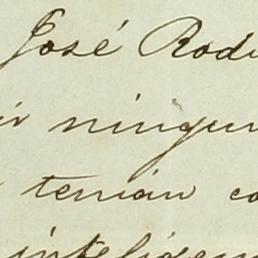 José Rod
ningun
tenian co
inteligen